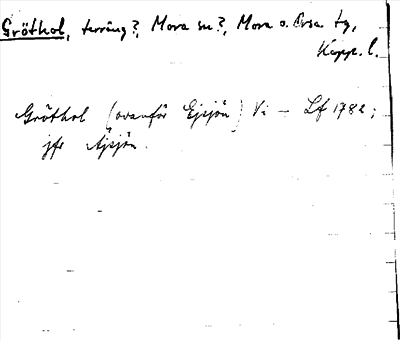 Gröthol, terräng?, Mora sn?, Mora o. Orsa tg,
Kopp. l.
Gröthol (ovanför Ejsjön) Vi - Lf 1782;
jfr Ajsjön.